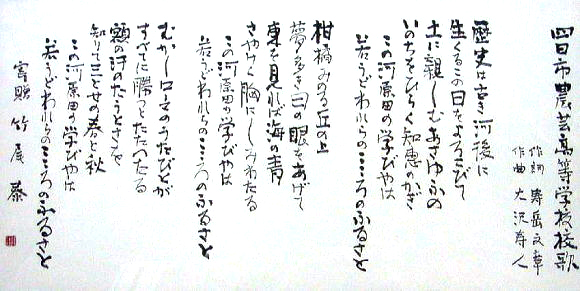 四日市農芸高等学校校歌
作詞 寿岳文章
作曲 大沢寿人
歴史は古き河後に
生くるこの日をよろこびて
土に親しむあさゆふの
いのちをひらく知恵のかぎ
この河原田の学びやは
若うどわれらのこころのふるさと
柑橘みのる丘の上
夢多き日の眼をあげて
東を見れば海の青
さやけく胸にしみわたる
この河原田の学びやは
若うどわれらのこころのふるさと
むかし人のうたびとが
すべてに勝つとたたへたる
額の汗のたうとさを
知りて三とせの春と秋
この河原田の学びやは
若うどわれらのこころのふるさと
寄贈 竹尾 泰